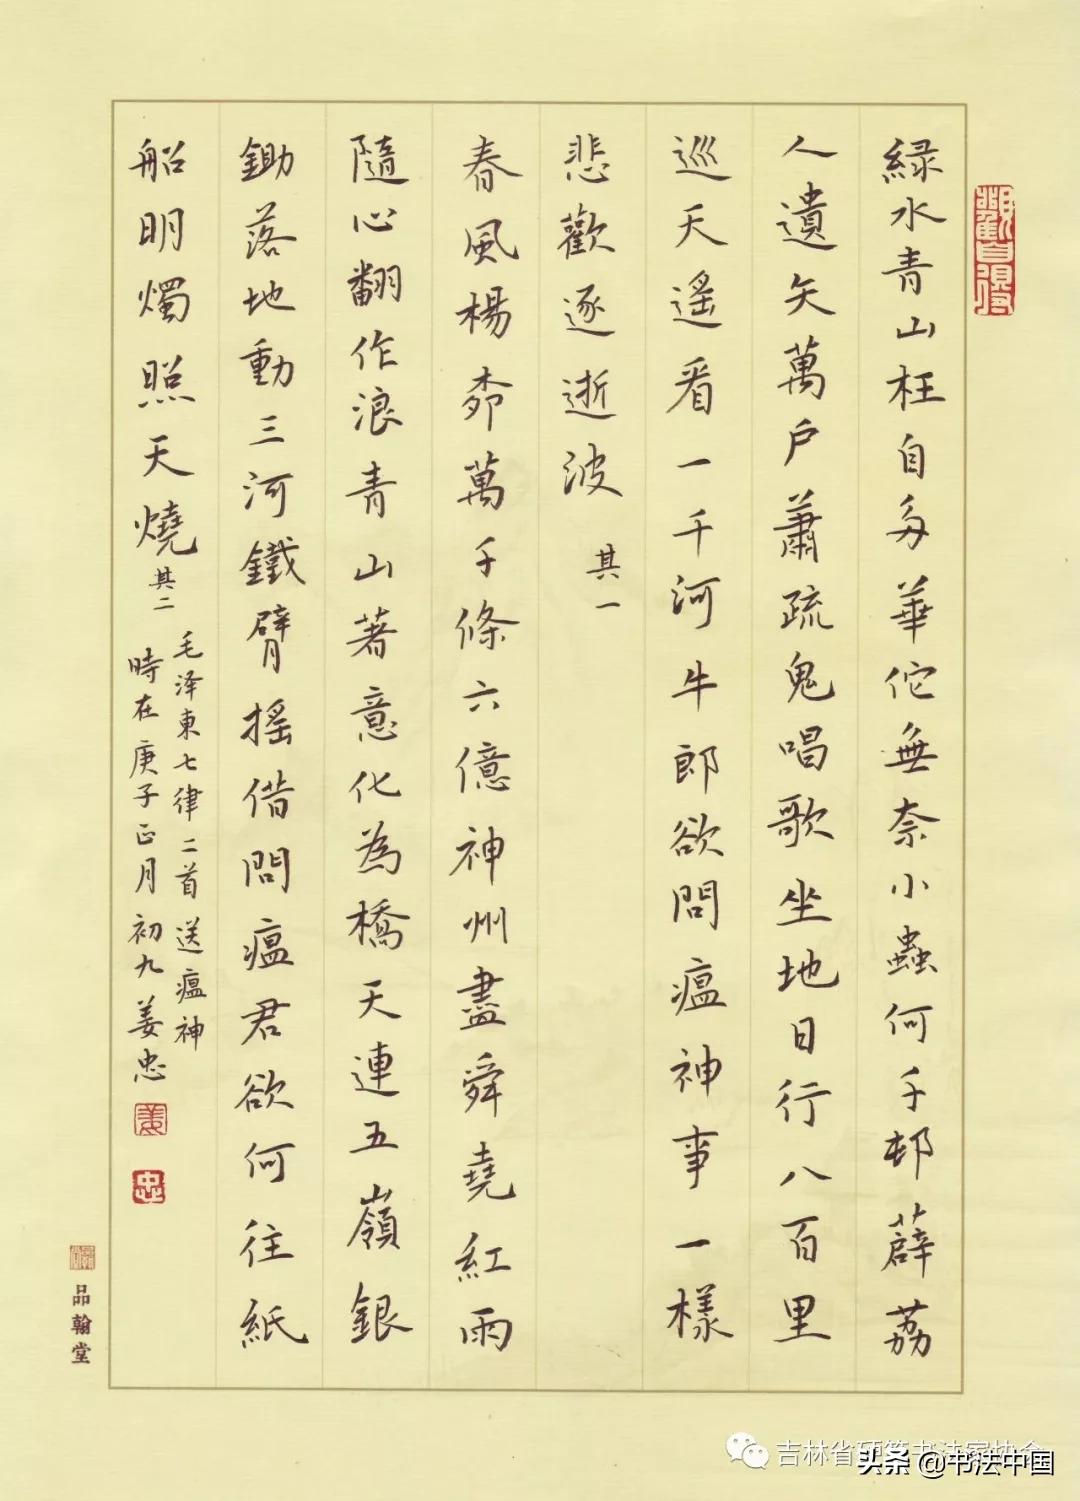 緑水青山枉自多華佗無奈小蟲何千邨薜荔
人遺矢萬戶蕭疏鬼唱歌坐地日行八百里
巡天遙看一千河牛郎欲問瘟神事一樣
悲歡逐逝波 其一
春風楊柳萬千條六億神州盡舜堯紅雨
隨心翻作浪青山著意化為橋天連五嶺銀
鋤落地動三河鐵臂搖借問瘟君欲何往紙
船明燭照天燒 其二
毛泽東七律二首送瘟神
時在庚子正月初九姜忠
姜
忠
品翰堂
吉林省硬筆书法家协会
头条 @书法中国